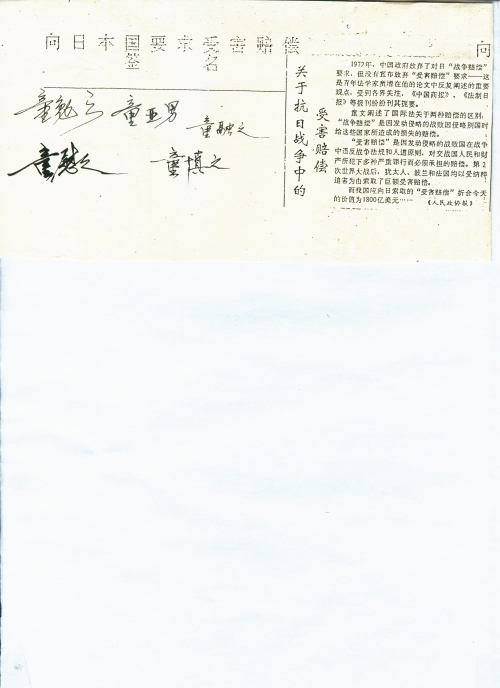 向日本国要求受害赔偿
签名
向
童勉之 童亚男 童融之
童慰之 童慎之
关于抗日战争中的
受害赔偿
1972年，中国政府放弃了对日“战争赔偿”
要求，但没有宣布放弃“受害赔偿”要求——这
是青年法学家童增在他的论文中反复阐述的重要
观点，受到各界关注，《中国商报》、《法制日
报》等报刊纷纷刊其提要。
童文阐述了国际法关于两种赔偿的区别，
“战争赔偿”是因发动侵略的战败国侵略别国时
给这些国家所造成的损失的赔偿。
“受害赔偿”是因发动侵略的战败国在战争
中违反战争法规和人道原则，对交战国人民和财
产所犯下多种严重罪行而必须承担的赔偿。第2
次世界大战后，犹太人、波兰和法国均以受纳粹
迫害为由索取了巨额受害赔偿。
而我国应向日索取的“受害赔偿”折合今天
的价值为1800亿美元…… 《人民政协报》